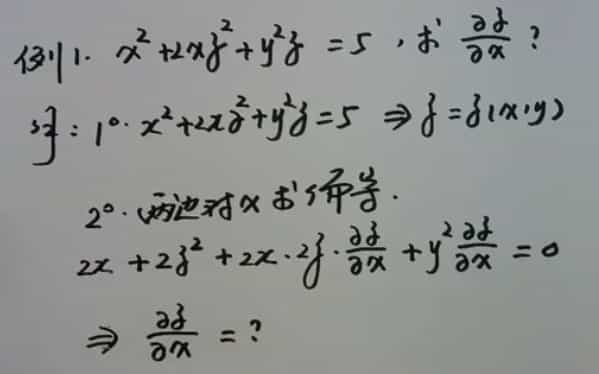 例1. x²+2xz²+y²z =5，求 ∂z/∂x ?
解：1°. x²+2xz²+y²z=5 ⇒ z=z(x,y)
2°. 两边对x求偏导.
2x +2z²+2x·2z·∂z/∂x+y²∂z/∂x =0
⇒ ∂z/∂x =?